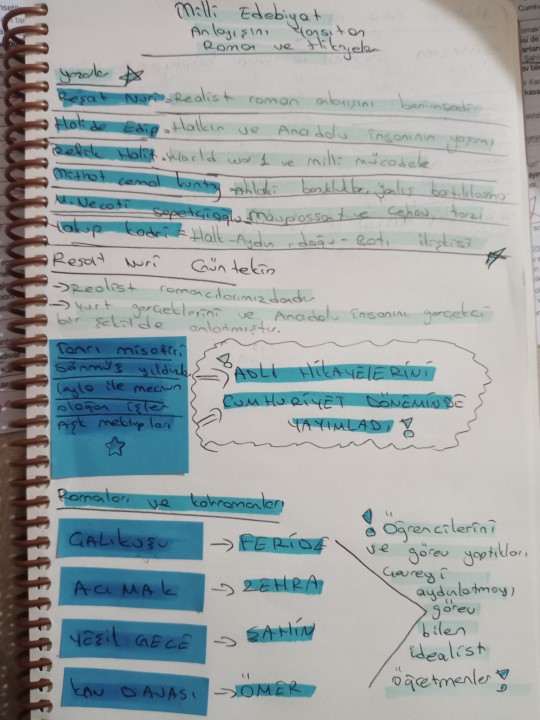 Milli Edebiyat
Anlayışını Yansıtan
Roman ve Hikayeler
yazarlar
Reşat Nuri = Realist roman anlayışını benimsedi
Halide Edip = Halkın ve Anadolu insanının yaşamı
Refik Halit = World war 1 ve milli mücadele
Mithat Cemal Kuntay = Ahlaki bozukluklar, yanlış batılılaşma
M. Necati Sepetçioğlu, Mauplossant ve Çehov, tarzı
Yakup Kadri = Halk-Aydın, doğu-Batı ilişkisi
Reşat Nuri Güntekin
→ Realist romancılarımızdandır
→ Yurt gerçeklerini ve Anadolu insanını gerçekçi
bir şekilde anlatmıştır.
Tanrı misafiri
Sönmüş yıldızlar
Leyla ile mecnun
olağan işler
Aşk mektupları
ADLI HİKAYELERİNİ
CUMHURİYET DÖNEMİNDE
YAYIMLADI!
Romanları ve kahramanları
ÇALIKUŞU → FERİDE
ACIMAK → ZEHRA
YEŞİL GECE → ŞAHİN
KAN DAVASI → ÖMER
! Öğrencilerini
ve görev yaptıkları
çevreyi
aydınlatmayı
görev
bilen
idealist
Öğretmenler!